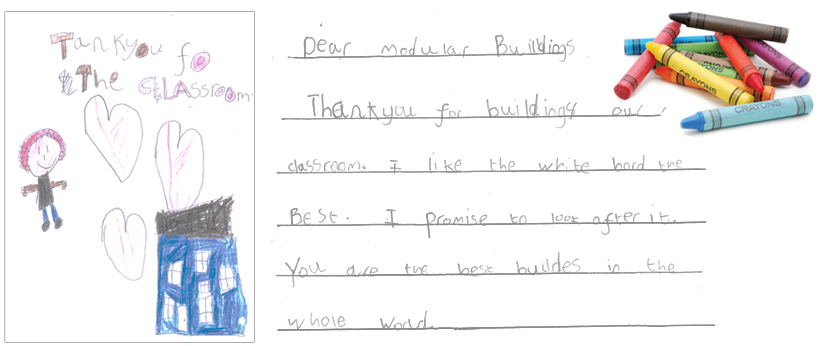 Tankyou fo
The cLAssroom.
Dear modular Buildings
Thankyou for buildings our
classroom. I like the white bord the
Best. I promise to look after it.
You are the best buildes in the
whole world.
CRAYONS
CRAYONS
CRAYONS
CRAYONS
CRAYONS